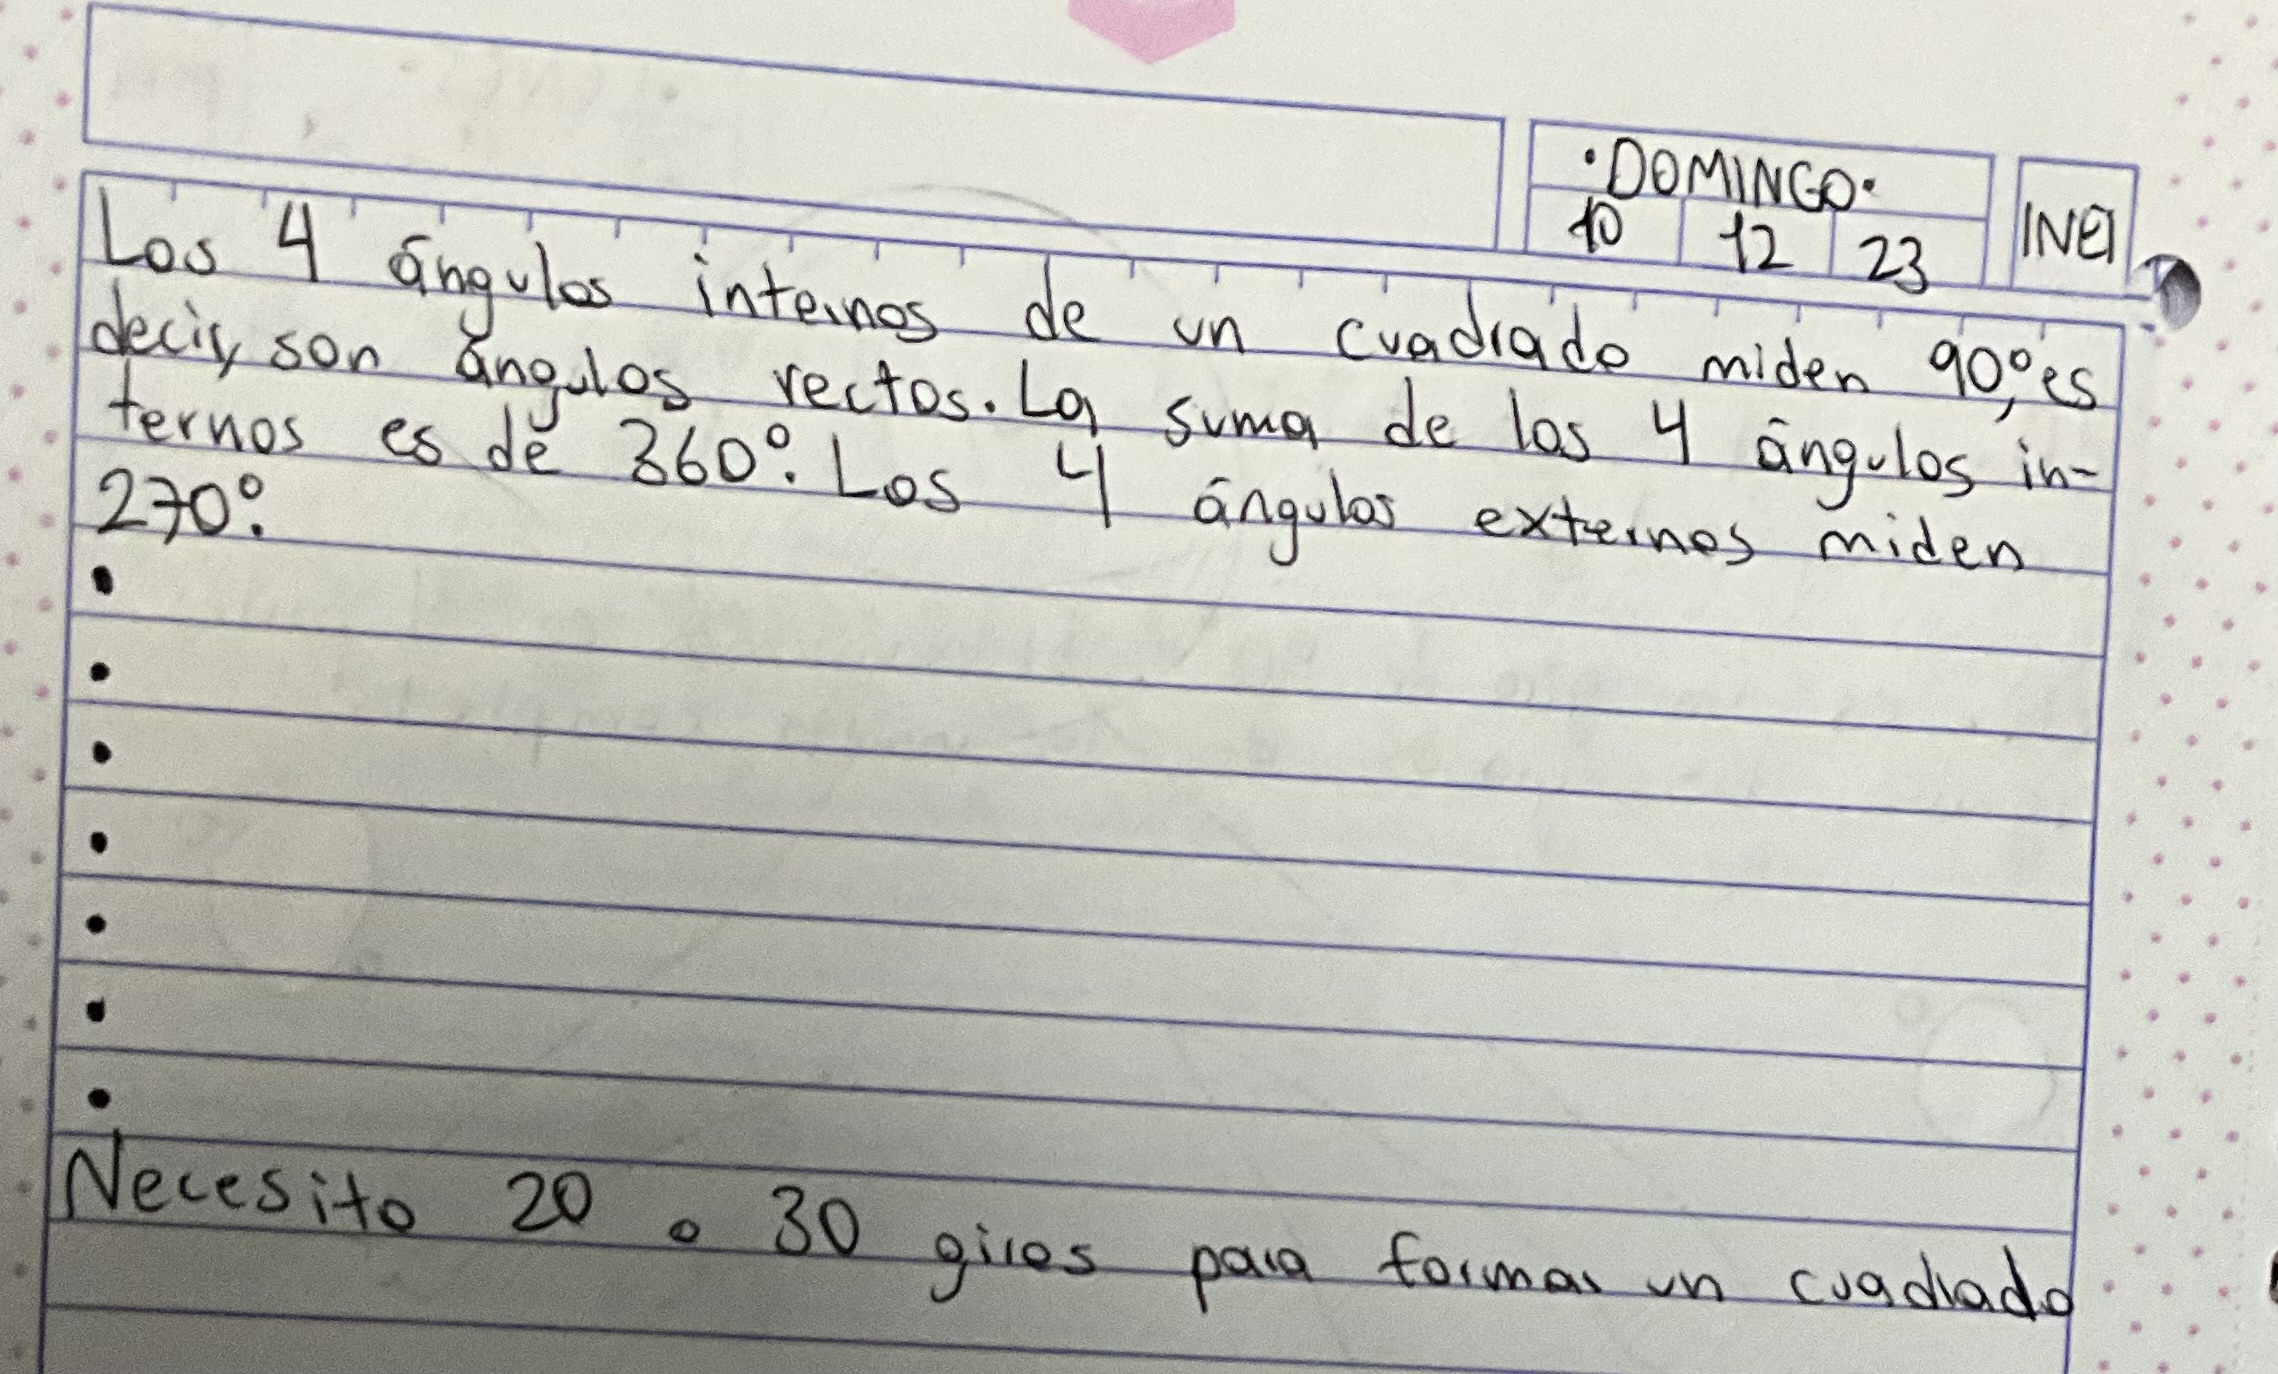 ·DOMINGO·
10 12 23
INEI
Los 4 ángulos internos de un cuadrado miden 90°, es
decir, son ángulos rectos. La suma de los 4 ángulos in-
ternos es de 360°. Los 4 ángulos externos miden
270°.
•
•
•
•
•
•
•
Necesito 20 o 30 giros para formar un cuadrado